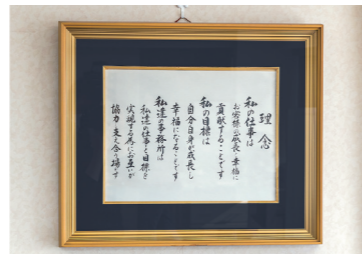 理念
私の仕事は
お客様の成長、幸福に
貢献することです
私の目標は
自分自身が成長し
幸福になることです
私達の事務所は
私達の仕事と目標を
実現する為にお互いが
協力し支え合う場です